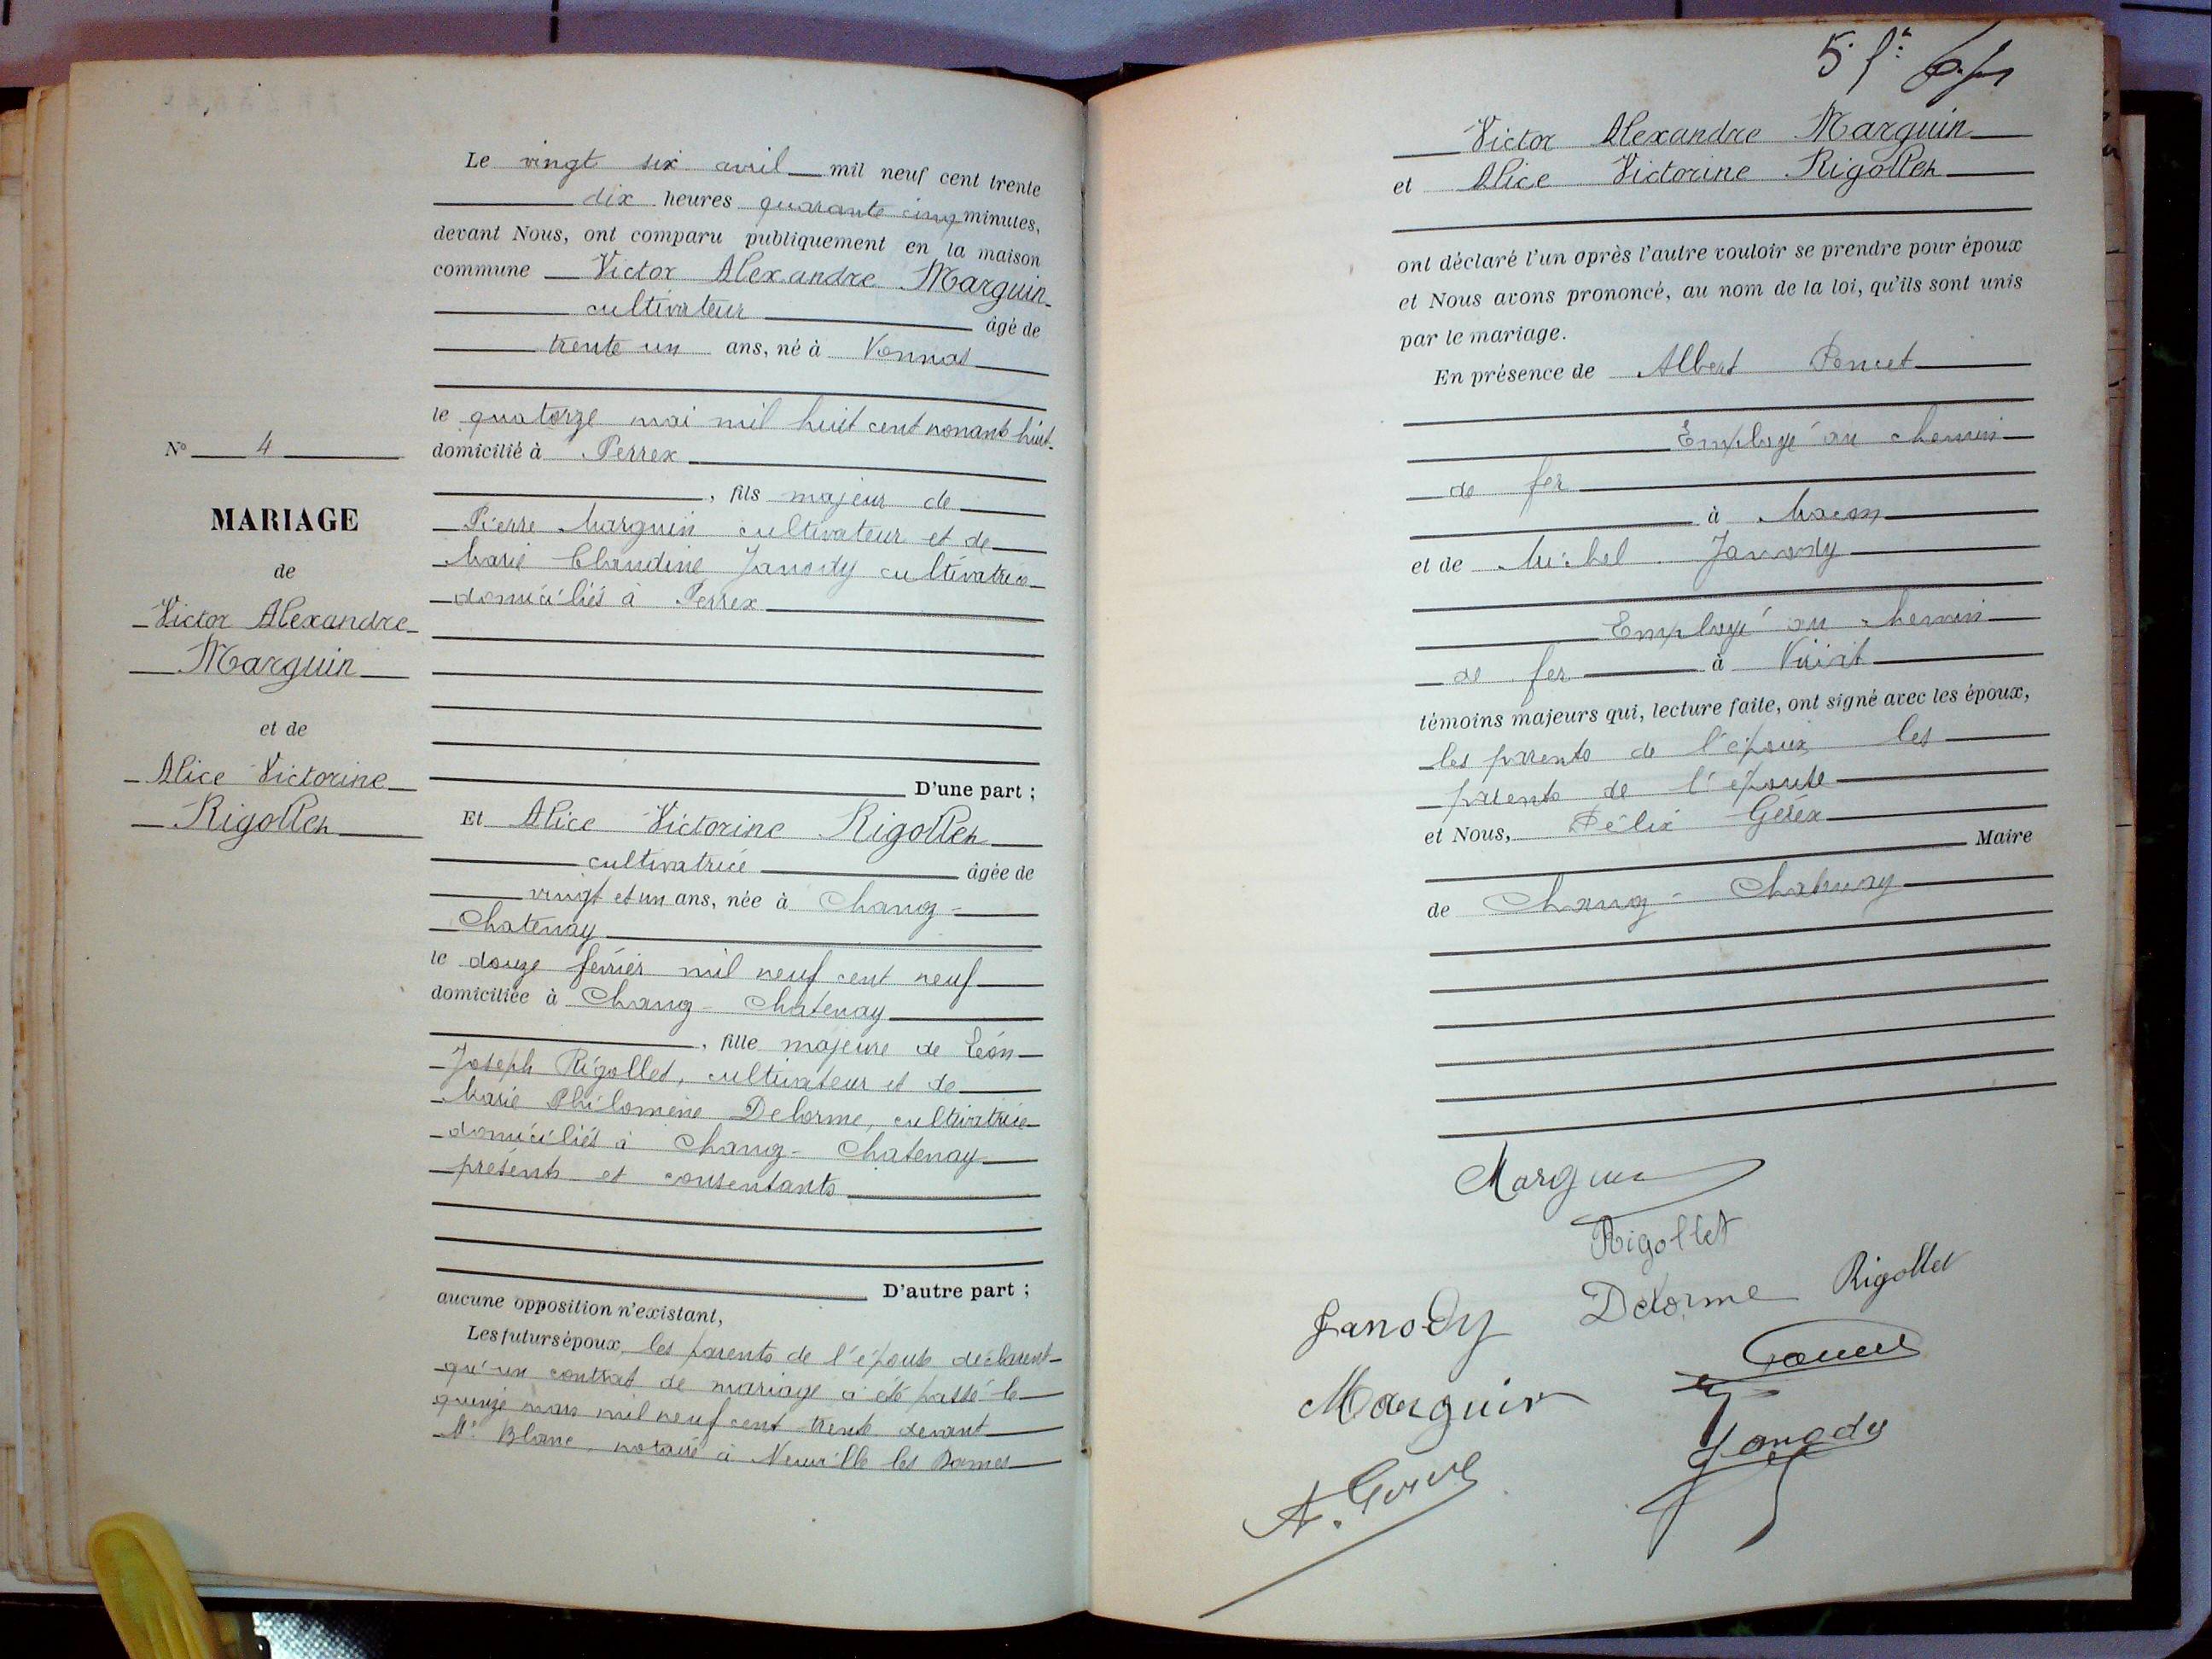 Le vingt six avril mil neuf cent trente
dix heures quarante cinq minutes,
devant Nous, ont comparu publiquement en la maison
commune Victor Alexandre Marguin
cultivateur âgé de
trente un ans, né à Vonnas
le quatorze mai mil huit cent nonante huit
domicilié à Perrex
, fils majeur de
Pierre Marguin cultivateur et de
Marie Claudine Janody cultivatrice
domiciliés à Perrex
D'une part ;
N° 4
MARIAGE
de
Victor Alexandre
Marguin
et de
Alice Victorine
Rigollet
Et Alice Victorine Rigollet
cultivatrice âgée de
vingt et un ans, née à Chanoz-
Chatenay
le douze février mil neuf cent neuf
domiciliée à Chanoz-Chatenay
, fille majeure de Léon
Joseph Rigollet, cultivateur et de
Marie Philomène Delorme, cultivatrice
domiciliés à Chanoz-Chatenay
présents et consentants
D'autre part ;
aucune opposition n'existant,
Les futurs époux, les parents de l'épouse déclarent
qu'un contrat de mariage a été passé le
quinze mars mil neuf cent trente devant
Me Blanc, notaire à Neuville les Dames
Victor Alexandre Marguin
et Alice Victorine Rigollet
ont déclaré l'un après l'autre vouloir se prendre pour époux
et Nous avons prononcé, au nom de la loi, qu'ils sont unis
par le mariage.
En présence de Albert Poncet
Employé au chemin
de fer
à Macon
et de Michel Janody
Employé au chemin
de fer à Viriat
témoins majeurs qui, lecture faite, ont signé avec les époux,
les parents de l'époux les
parents de l'épouse
et Nous, Félix
Maire
de Chanoz-Chatenay
Marguin
Rigollet
Janody Delorme Rigollet
Marguin
Janody